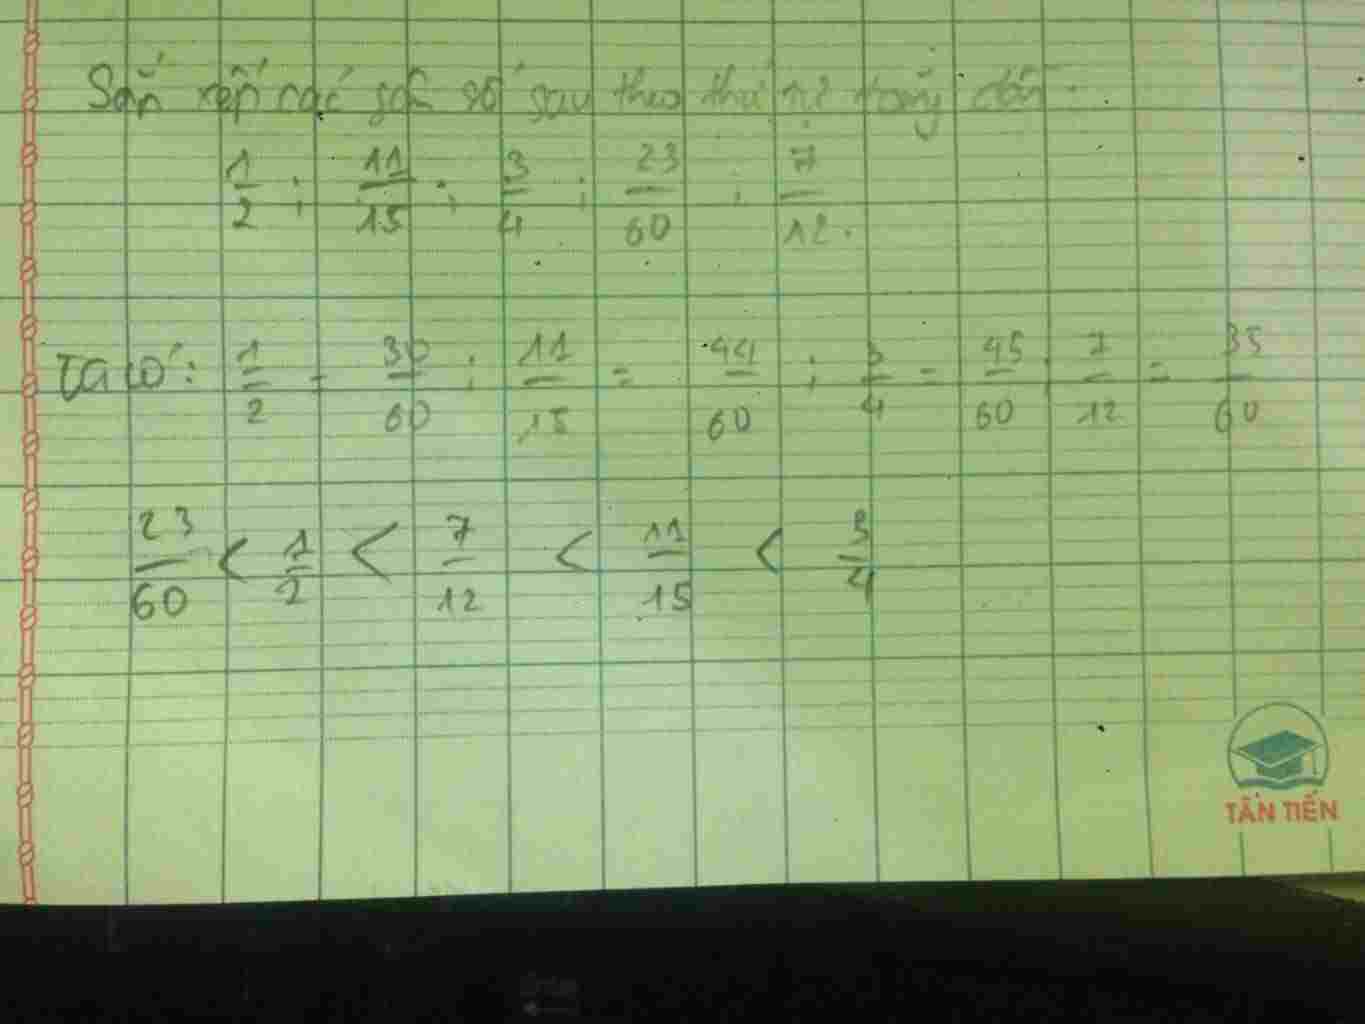 Sắp xếp các số sau theo thứ tự tăng dần.
1/2 ; 11/15 ; 3/4 ; 23/60 ; 7/12.
Ta có: 1/2 = 30/60 ; 11/15 = 44/60 ; 3/4 = 45/60 ; 7/12 = 35/60
23/60 < 1/2 < 7/12 < 11/15 < 3/4
TÂN TIẾN